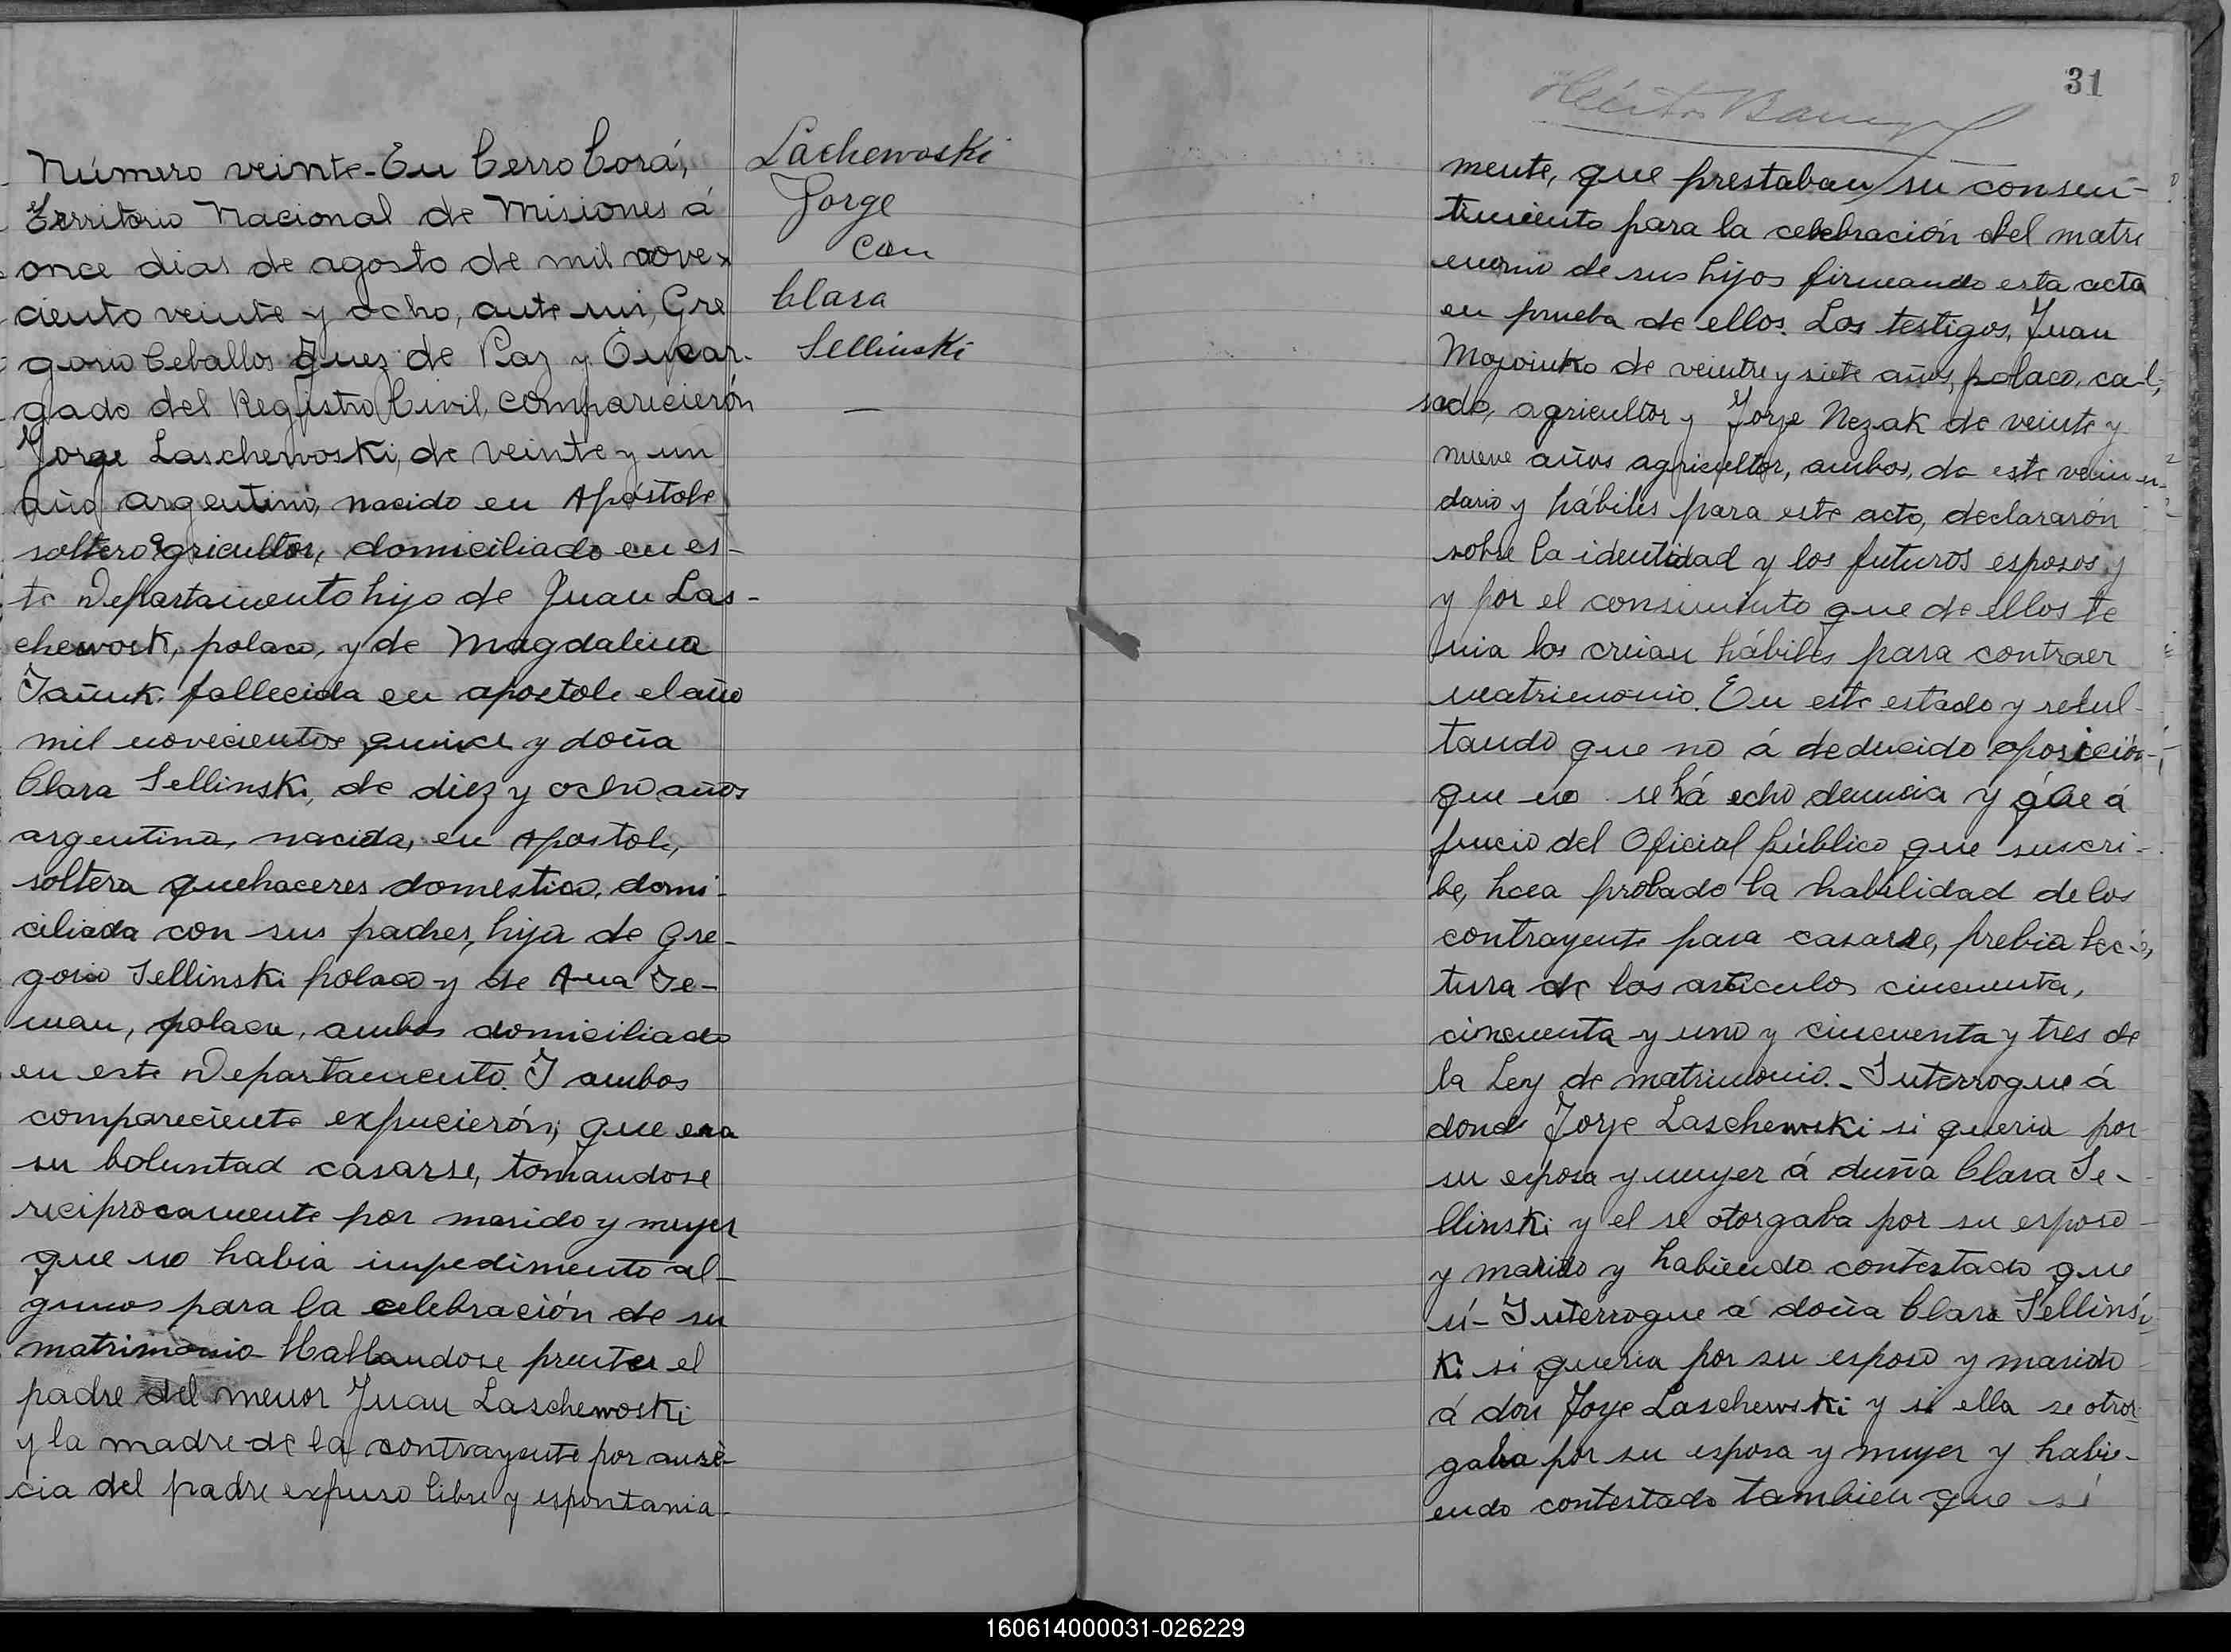 Número veinte-En Cerro Corá,
Territorio Nacional de Misiones á
once dias de agosto de mil nove
ciento veinte y ocho, ante mi, Gre
gorio Ceballos Juez de Paz y Encar-
gado del Registro Civil, comparicierón
Jorge Laschewoski, de veinte y un
año argentino, nacido en Apóstole
soltero agricultor, domiciliado en es-
te Departamento hijo de Juan Las-
chewosk, polaco, y de Magdalena
fallecida en apostole el año
mil novecientos quince y doña
Clara Sellinski, de diez y ocho años
argentina, nacida, en Apostole,
soltera quehaceres domestico, domi-
ciliada con sus padres, hija de Gre-
gorio Sellinski polaco y de Ana Se-
man, polaca, ambos domiciliado
en este Departamento. I ambos
compareciente expucierón, que era
su boluntad casarse, tomandose
reciprocamente por marido y mujer
que no habia impedimento al-
gunos para la celebración de su
matrimonio Hallandose prentes el
padre del menor Juan Laschewoski
y la madre de la contrayente por ausè-
cia del padre expuso libre y espontania-
Lachewoski
Jorge
con
Clara
Sellinski
31
mente, que prestaban su consen-
timiento para la celebración del matri
monio de sus hijos firmando esta acta
en prueba de ellos. Los testigos, Juan
de veintre y siete años, polaco, ca-
sado, agricultor y Jorje Nezak de veinte y
nueve años agricultor, ambos, de este vecin
dario y hábiles para este acto, declararón
sobre la identidad y los futuros esposos y
y por el consimiento que de ellos te
nia los creian hábiles para contraer
matrimonio. En este estado y resul-
tando que no á deducido oposición-
que no se há echo denucia y que á
jiucio del Oficial público que suscri-
be, hcea probado la habilidad de los
contrayente para casarse, prebia lec-
tura de los articulos cincuenta,
cincuenta y uno y cincuenta y tres de
la Ley de matrimonio.- Interrogue á
donde Jorje Laschewski si queria por
su esposa y mujer á duña Clara Se-
llinski y el se otorgaba por su esposo -
y marido y habiendo contestado que
sí- Interrogue á doña Clara Sellins
ki si queria por su esposo y marido -
á don Joye Laschewski y si ella se otror
gaba por su esposa y mujer y habi-
endo contestado tambien que sí
160614000031-026229